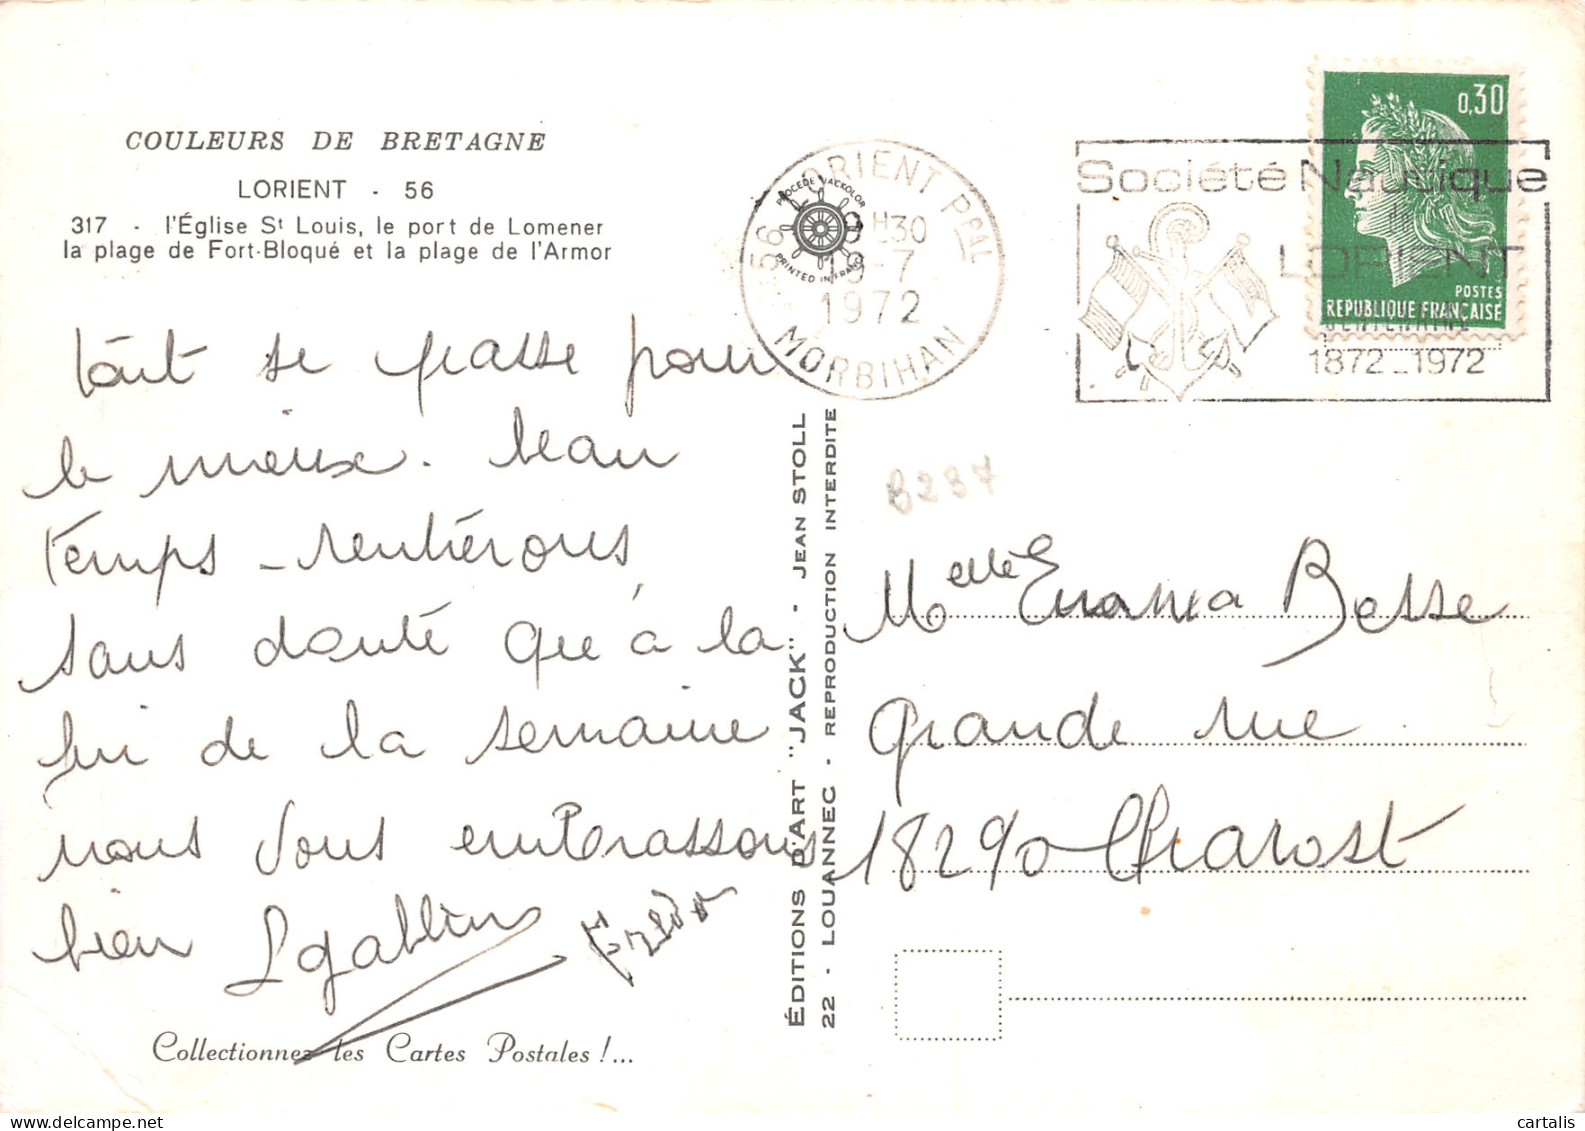 COULEURS DE BRETAGNE
LORIENT - 56
317 - l'Église St Louis, le port de Lomener
la plage de Fort-Bloqué et la plage de l'Armor
tout se passe pour
le mieux. beau
temps - rentrerons
sans doute que à la
fin de la semaine
nous vous embrassons
bien
Collectionnez les Cartes Postales !...
ÉDITIONS D'ART "JACK" - JEAN STOLL
22 - LOUANNEC - REPRODUCTION INTERDITE
56 LORIENT PPAL
H30
-7
1972
MORBIHAN
PROCÉDÉ JACKOLOR
PRINTED IN FRANCE
Société Nautique
de
LORIENT
CENTENAIRE
1872_1972
0,30
POSTES
REPUBLIQUE FRANÇAISE
B237
Melle Besse
Grande rue
18290 Charost
cartalis